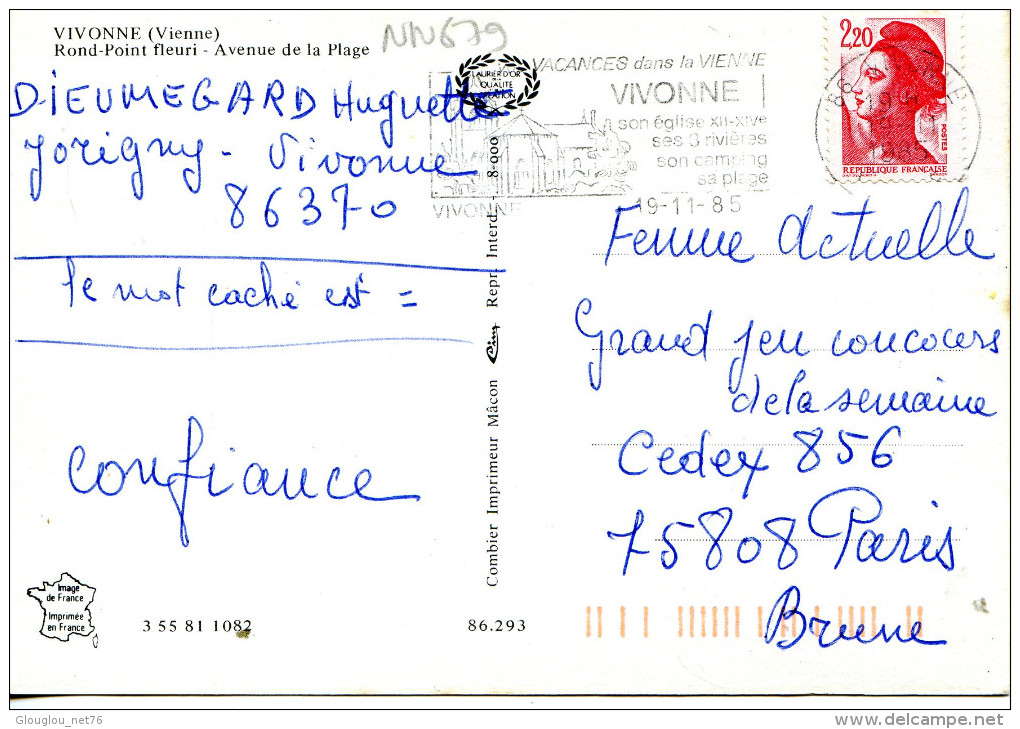 VIVONNE (Vienne)
Rond-Point fleuri - Avenue de la Plage
NN679
DIEUMEGARD Huguette
Jorigny - Vivonne
86370
le mot caché est =
confiance
Image
de France
Imprimée
en France
3 55 81 1082
86.293
Combier Imprimeur Mâcon Cim Repr. Interd. - 8-000
LAURIER D'OR
QUALITÉ
VACANCES dans la VIENNE
VIVONNE
son église XII-XIVe
ses 3 rivières
son camping
sa plage
VIVONNE
19-11-85
2,20
POSTES
REPUBLIQUE FRANÇAISE
Femme Actuelle
Grand jeu concours
de la semaine
Cedex 856
75808 Paris
Brune
Glouglou_net76
www.delcampe.net